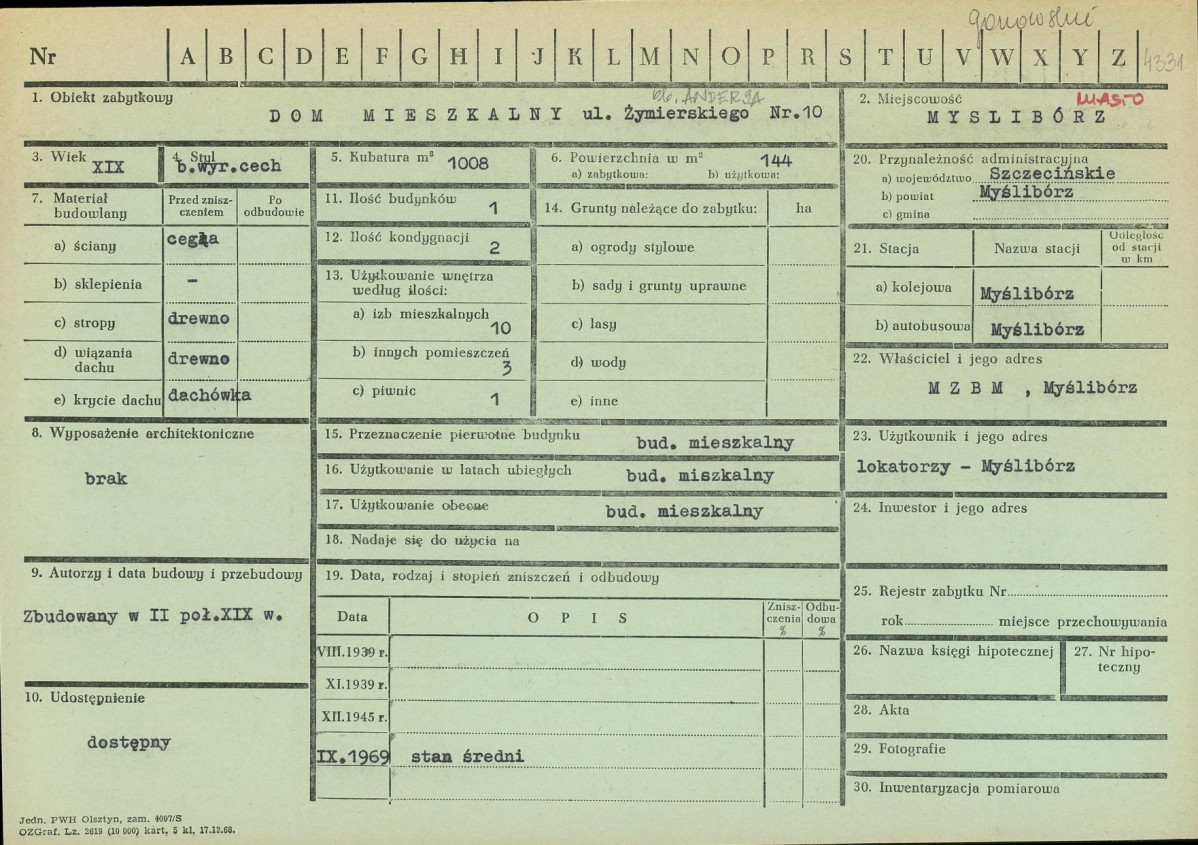 gonowskii
Nr A B C D E F G H I J K L M N O P R S T U V W X Y Z 4331
1. Obiekt zabytkowy
ob. ANDERSA
DOM MIESZKALNY ul. Żymierskiego Nr.10
2. Miejscowość MIASTO
MYSLIBÓRZ
3. Wiek XIX
4. Styl b.wyr.cech
5. Kubatura m³ 1008
6. Powierzchnia w m² 144
a) zabytkowa: b) użytkowa:
20. Przynależność administracyjna
a) województwo Szczecińskie
b) powiat Myślibórz
c) gmina
7. Materiał budowlany
Przed zniszczeniem
Po odbudowie
a) ściany cegła
b) sklepienia -
c) stropy drewno
d) wiązania dachu drewno
e) krycie dachu dachówka
11. Ilość budynków 1
12. Ilość kondygnacji 2
13. Użytkowanie wnętrza
według ilości:
a) izb mieszkalnych 10
b) innych pomieszczeń 3
c) piwnic 1
14. Grunty należące do zabytku: ha
a) ogrody stylowe
b) sady i grunty uprawne
c) lasy
d) wody
e) inne
21. Stacja
Nazwa stacji
Odległość od stacji w km
a) kolejowa Myślibórz
b) autobusowa Myślibórz
22. Właściciel i jego adres
M Z B M , Myślibórz
8. Wyposażenie architektoniczne
brak
15. Przeznaczenie pierwotne budynku bud. mieszkalny
16. Użytkowanie w latach ubiegłych bud. miszkalny
17. Użytkowanie obecne bud. mieszkalny
18. Nadaje się do użycia na
23. Użytkownik i jego adres
lokatorzy - Myślibórz
24. Inwestor i jego adres
9. Autorzy i data budowy i przebudowy
Zbudowany w II poł.XIX w.
10. Udostępnienie
dostępny
19. Data, rodzaj i stopień zniszczeń i odbudowy
Data
O P I S
Zniszczenia %
Odbudowa %
VIII.1939 r.
XI.1939 r.
XII.1945 r.
IX.1969 stan średni
25. Rejestr zabytku Nr
rok miejsce przechowywania
26. Nazwa księgi hipotecznej
27. Nr hipoteczny
28. Akta
29. Fotografie
30. Inwentaryzacja pomiarowa
Jedn. PWH Olsztyn, zam. 4097/S
OZGraf. Lz. 2619 (10 000) kart, 5 kl, 17.12.68.